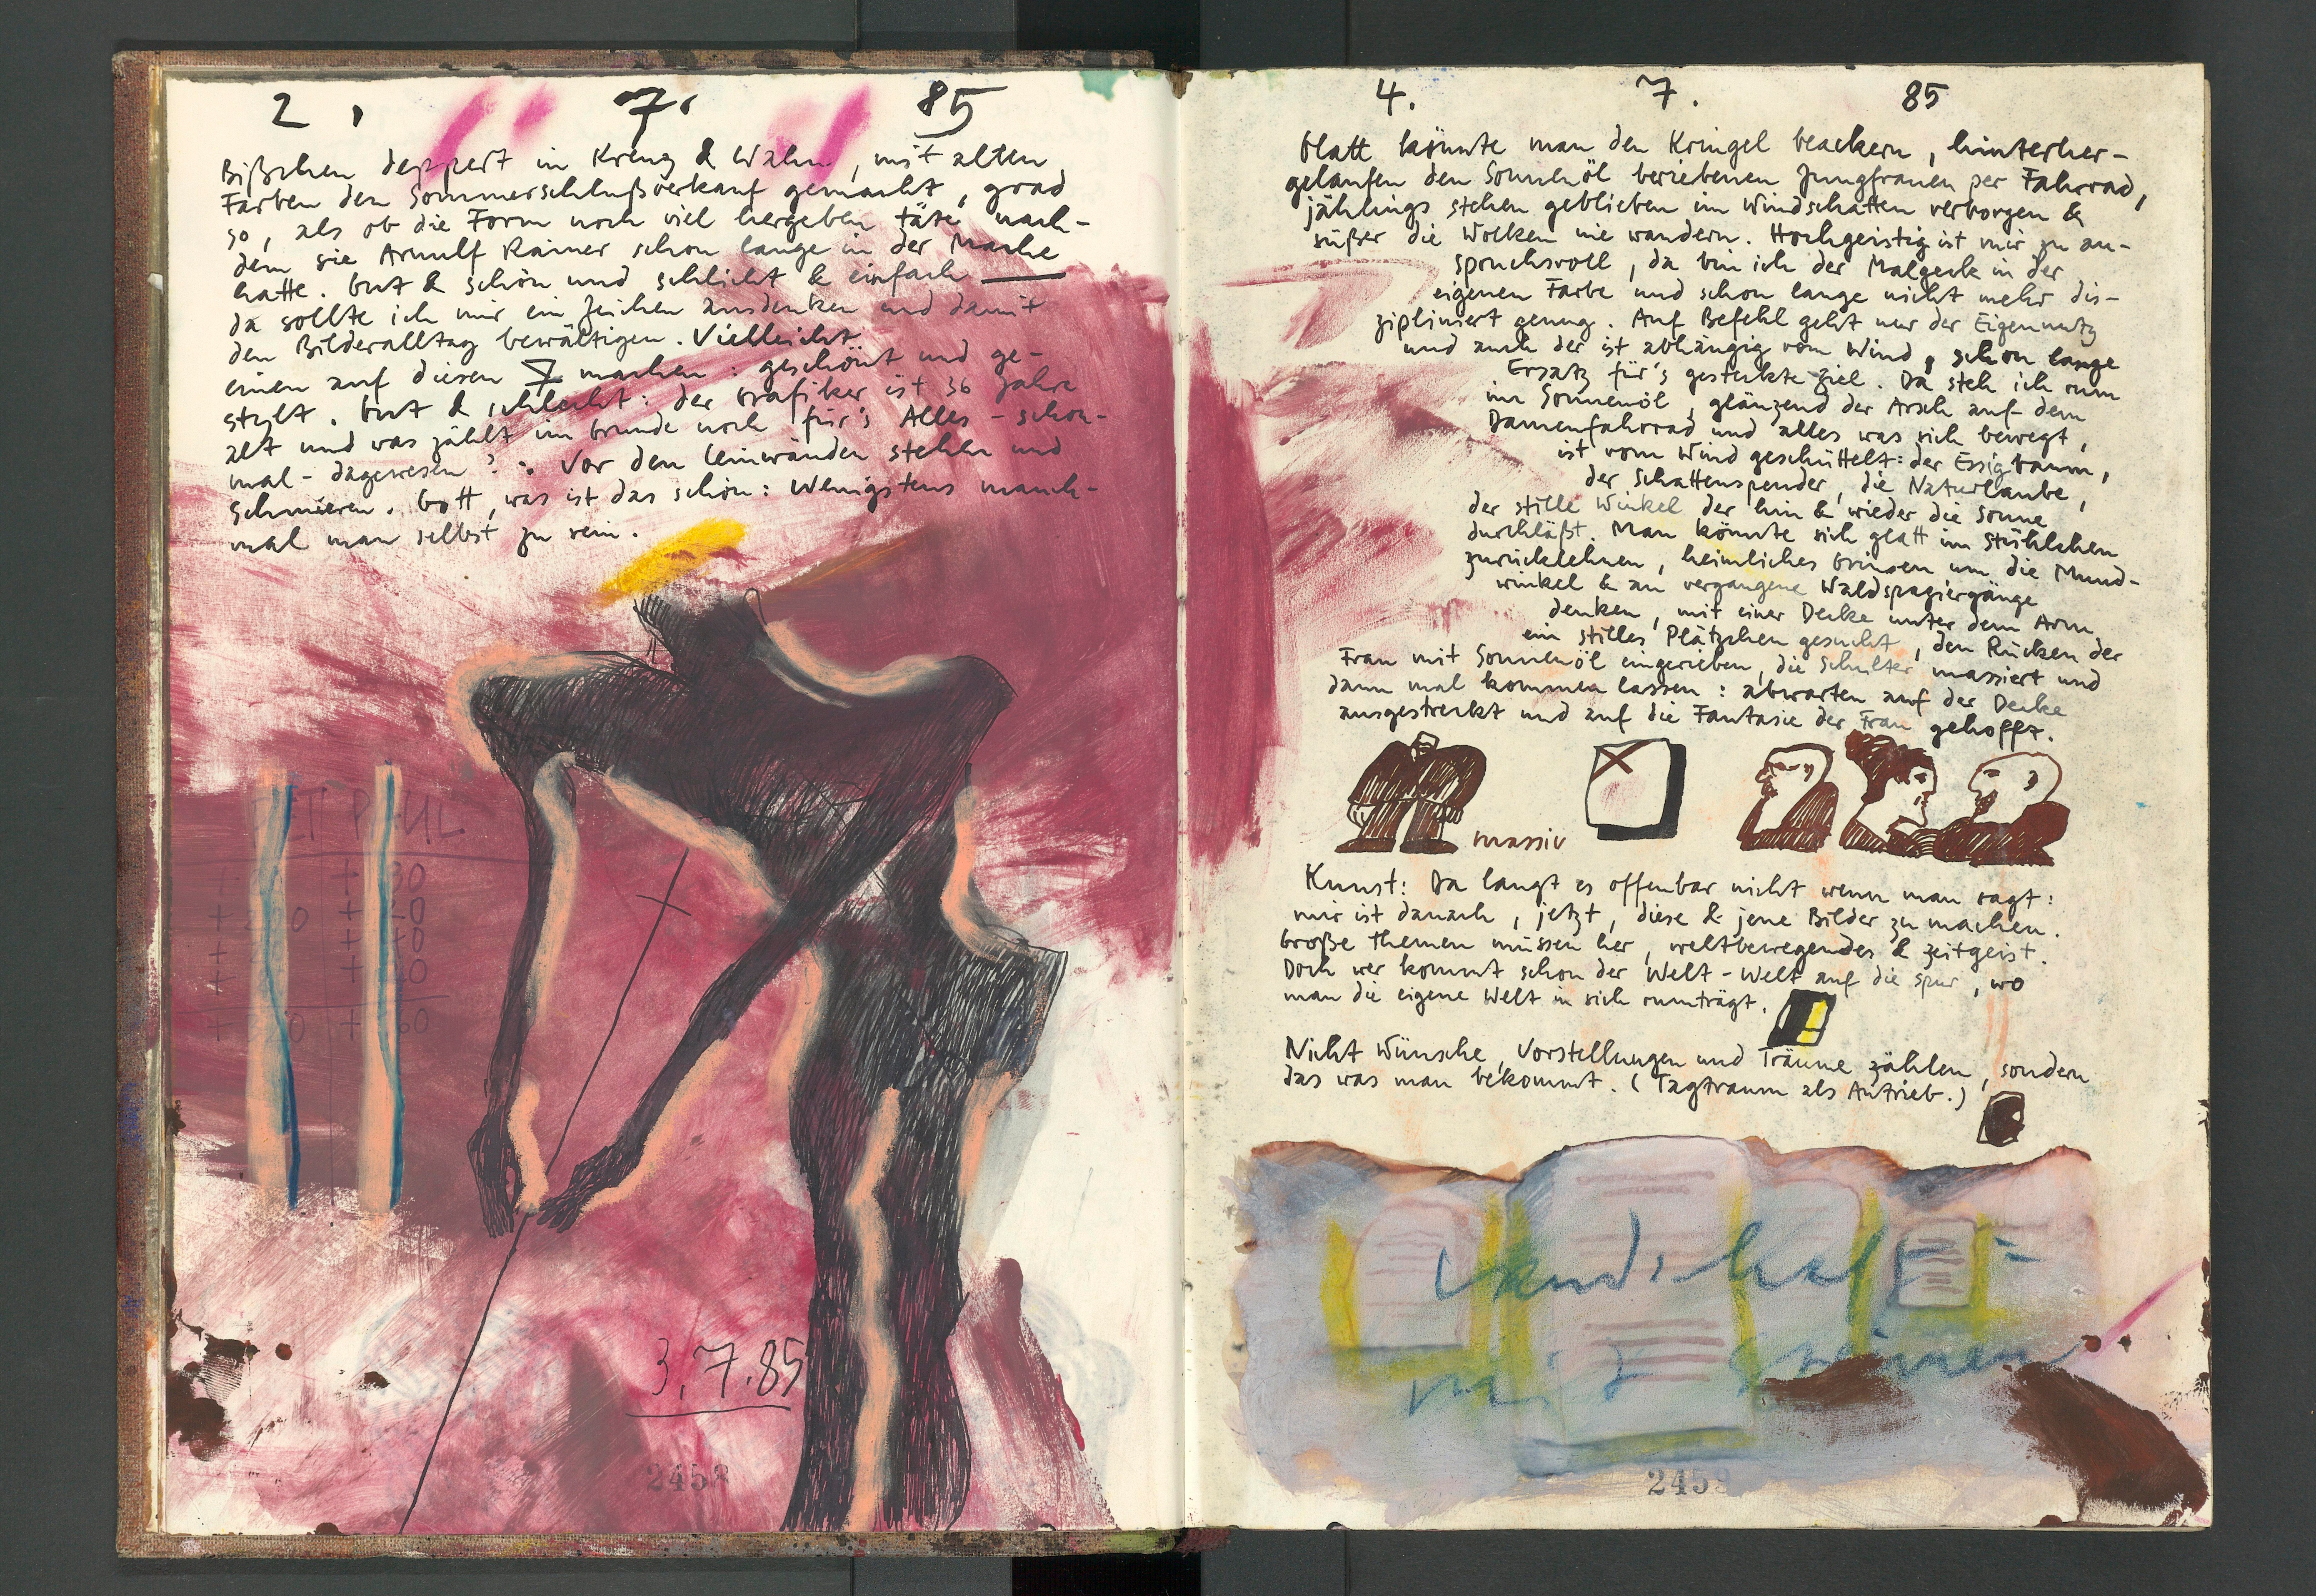 2. 7. 85
Bißchen deppert in Kreuz & Wahn, mit alten
Farben den Sommerschlußverkauf gemacht, grad
so, als ob die Form noch viel hergeben täte nach-
dem sie Arnulf Rainer schon lange in der Mache
hatte. Gut & schön und schlicht & einfach —
da sollte ich mir ein Zeichen ausdenken und damit
den Bilderalltag bewältigen. Vielleicht
einen auf diesen 7 machen: geschönt und ge-
stylt. Gut & schlecht: der Grafiker ist 36 Jahre
alt und was zählt im Grunde noch für's Alles-schon-
mal-dagewesen?: Vor den Leinwänden stehen und
Schmieren. Gott, was ist das schön: Wenigstens manch-
mal man selbst zu sein.
3.7.85
2458
4. 7. 85
Glatt könnte man den Kringel beackern, hinterher-
gelaufen den Sonnenöl beriebenen Jungfrauen per Fahrrad,
jählings stehen geblieben im Windschatten verborgen &
süßer die Wolken nie wandern. Hochgeistig ist mir zu an-
spruchsvoll, da bin ich der Malgeck in der
eigenen Farbe und schon lange nicht mehr dis-
zipliniert genug. Auf Befehl geht nur der Eigennutz
und auch der ist abhängig vom Wind, schon lange
Ersatz für's gesteckte Ziel. Da steh ich rum
im Sonnenöl, glänzend der Arsch auf dem
Damenfahrrad und alles was sich bewegt,
ist vom Wind geschüttelt: der Essigbaum,
der Schattenspender, die Naturlaube,
der stille Winkel der hin & wieder die Sonne
durchläßt. Man könnte sich glatt im Stühlchen
zurücklehnen, heimliches Grinsen um die Mund-
winkel & an vergangene Waldspaziergänge
denken, mit einer Decke unter dem Arm
ein stilles Plätzchen gesucht, den Rücken der
Frau mit Sonnenöl eingerieben, die Schulter massiert und
dann mal kommen lassen: abwarten auf der Decke
ausgestreckt und auf die Fantasie der Frau gehofft.
massiv
Kunst: Da langt es offenbar nicht wenn man sagt:
mir ist danach, jetzt, diese & jene Bilder zu machen.
Große Themen müssen her, weltbewegendes & Zeitgeist.
Doch wer kommt schon der Welt-Welt auf die Spur, wo
man die eigene Welt in sich rumträgt.
Nicht Wünsche, Vorstellungen und Träume zählen, sondern
das was man bekommt. (Tagtraum als Antrieb.)
Landschaft
mit Steinen
2459